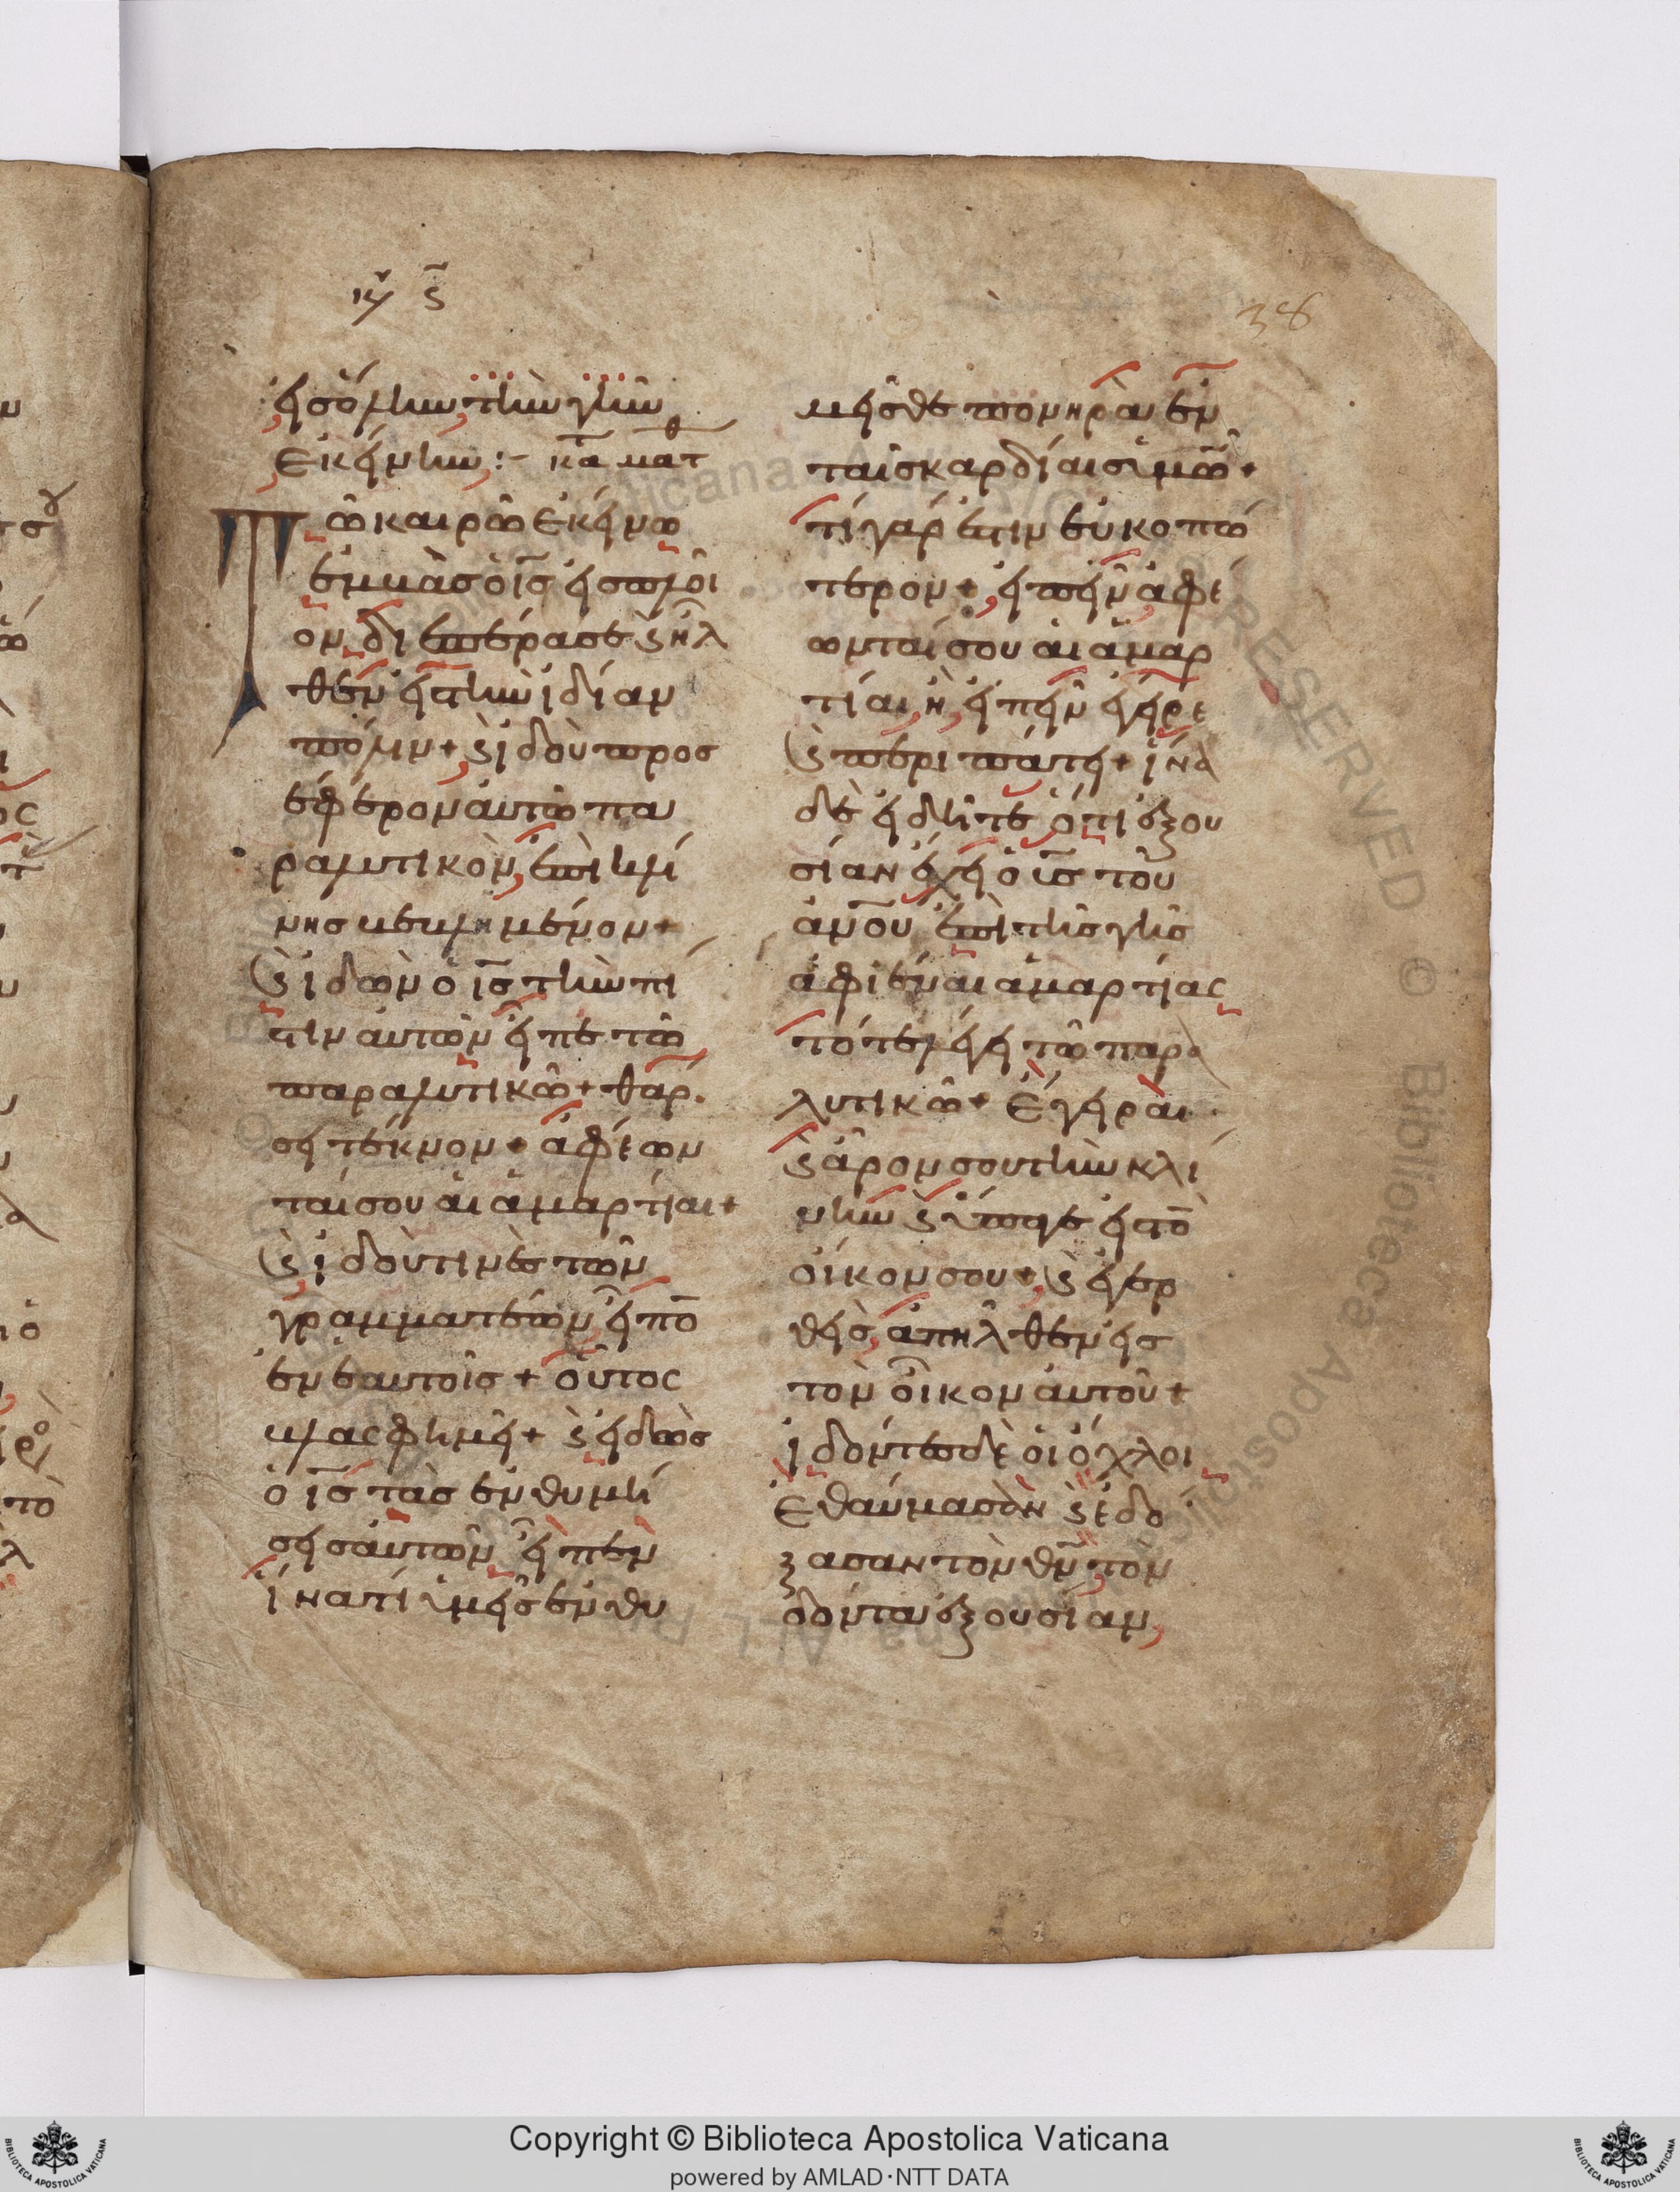 κυ ς
38
εἰσ ὅλην τὴν γῆν
ἐκείνην :- κα ματθ
Τῶ καιρῶ ἐκείνω
ἐμβὰσ ὁ ισ εἰσ πλοῖ
ον διεπέρασε ϗ ἦλ
θεν εἰσ τὴν ἰδίαν
πόλιν + ϗ ἰδοὺ προσ
έφερον αὐτῶ πα
ραλυτικὸν, ἐπὶ κλί
νησ βεβλημένον +
ϗ ἰδὼν ὁ ισ τὴν πί
στιν αὐτῶν εἶπε τῶ
παραλυτικῶ + θάρ
σει τέκνον + ἀφέων
ταί σου αἱ ἁμαρτίαι +
ϗ ἰδού τινεσ τῶν
γραμματέων εἶπο
ἐν ἑαυτοῖσ + οὗτος
βλασφημεῖ + ϗ εἰδὼσ
ὁ ισ τὰσ ἐνθυμή
σεισ αὐτῶν εἶπεν
ἵνα τί ὑμεῖσ ἐνθυ
μεῖσθε πονηρὰ ἐν
ταῖσ καρδίαισ ὑμῶ +
τί γάρ ἐστιν εὐκοπώ
τερον + εἰπεῖν ἀφέ
ωνταί σου αἱ ἁμαρ
τίαι, ἢ, εἰπεῖν ἔγειρε
ϗ περιπάτει + ἵνα
δὲ εἰδῆτε ὅτι ἐξου
σίαν ἔχει ὁ υσ τοῦ
ανου ἐπὶ τῆσ γῆσ
ἀφιέναι ἁμαρτίας
τότε λέγει τῶ παρα
λυτικῶ + ἐγερθεὶσ
ϗ ἆρον σου τὴν κλί
νην ϗ ὕπαγε εἰσ τὸ
οἶκόν σου + ϗ ἐγερ
θεὶσ, ἀπῆλθεν εἰσ
τὸν οἶκον αὐτοῦ +
ἰδόντεσ δὲ οἱ ὄχλοι
ἐθαύμασαν ϗ ἐδό
ξασαν τὸν θν, τὸν
δόντα ἐξουσίαν,
Copyright © Biblioteca Apostolica Vaticana
powered by AMLAD·NTT DATA